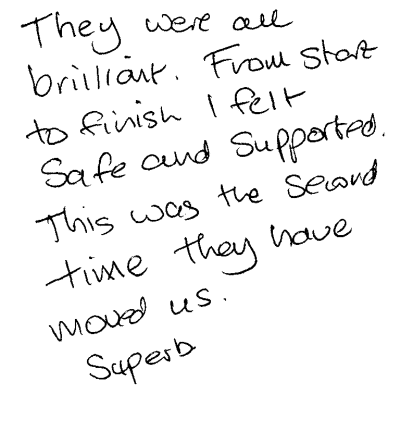 They were all
brilliant. From start
to finish I felt
Safe and Supported.
This was the Second
time they have
moved us.
Superb